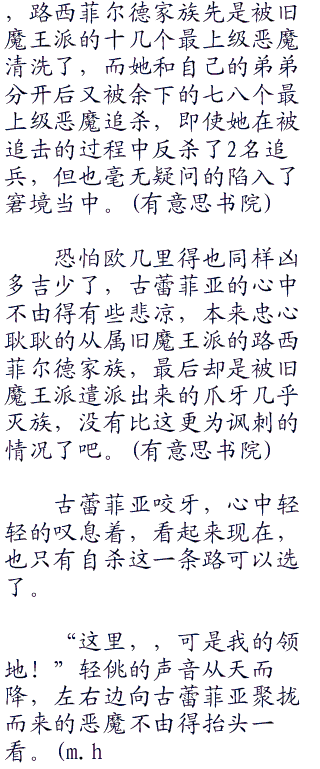 ，路西菲尔德家族先是被旧
魔王派的十几个最上级恶魔
清洗了，而她和自己的弟弟
分开后又被余下的七八个最
上级恶魔追杀，即使她在被
追击的过程中反杀了2名追
兵，但也毫无疑问的陷入了
窘境当中。(有意思书院)
恐怕欧几里得也同样凶
多吉少了，古蕾菲亚的心中
不由得有些悲凉，本来忠心
耿耿的从属旧魔王派的路西
菲尔德家族，最后却是被旧
魔王派遣派出来的爪牙几乎
灭族，没有比这更为讽刺的
情况了吧。(有意思书院)
古蕾菲亚咬牙，心中轻
轻的叹息着，看起来现在，
也只有自杀这一条路可以选
了。
“这里，，可是我的领
地！”轻佻的声音从天而
降，左右边向古蕾菲亚聚拢
而来的恶魔不由得抬头一
看。(m.h